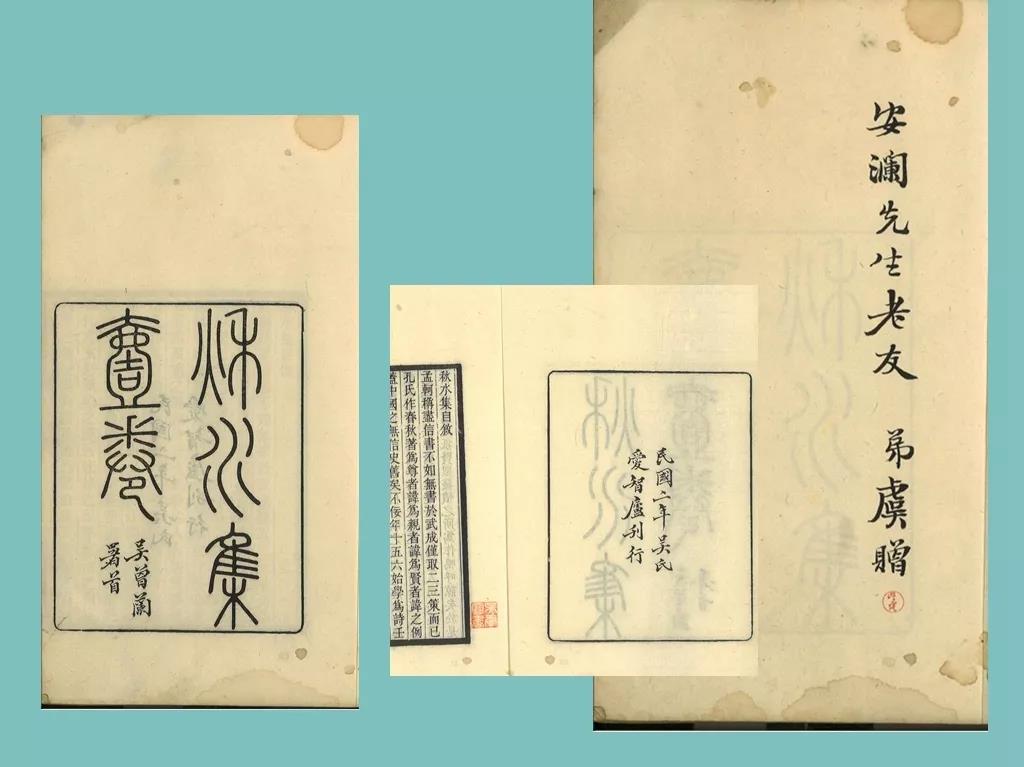 秋水集
壹卷
吳曾蘭
署首
民國二年吳氏
愛智廬刊行
秋水集自敘
孟軻稱盡信書不如無書於武成僅取二三策而已
孔氏作春秋著爲尊者諱爲親者諱爲賢者諱之例
蓋中國之無信史舊矣不佞年十五六始學爲詩壬
安瀾先生老友 弟虞贈